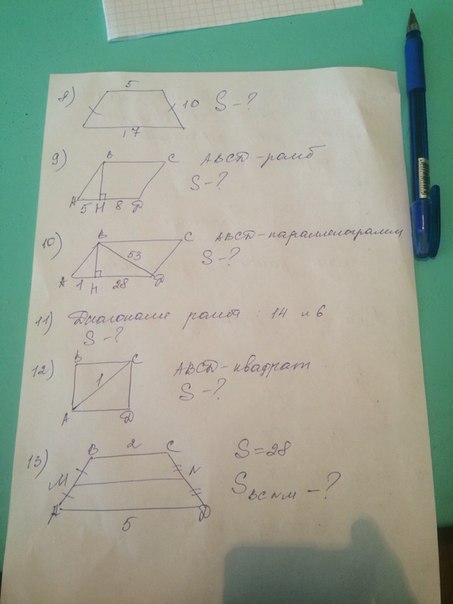 8)
5
10
17
S-?
9)
B
C
A
5
H
8
Д
АВСД-ромб
S-?
10)
B
C
53
A
1
H
28
Д
АВСД-параллелограмм
S-?
11) Диагонали ромба: 14 и 6
S-?
12)
B
C
1
A
Д
АВСД-квадрат
S-?
13)
B
2
C
M
N
A
5
Д
S=28
S BCNM -?